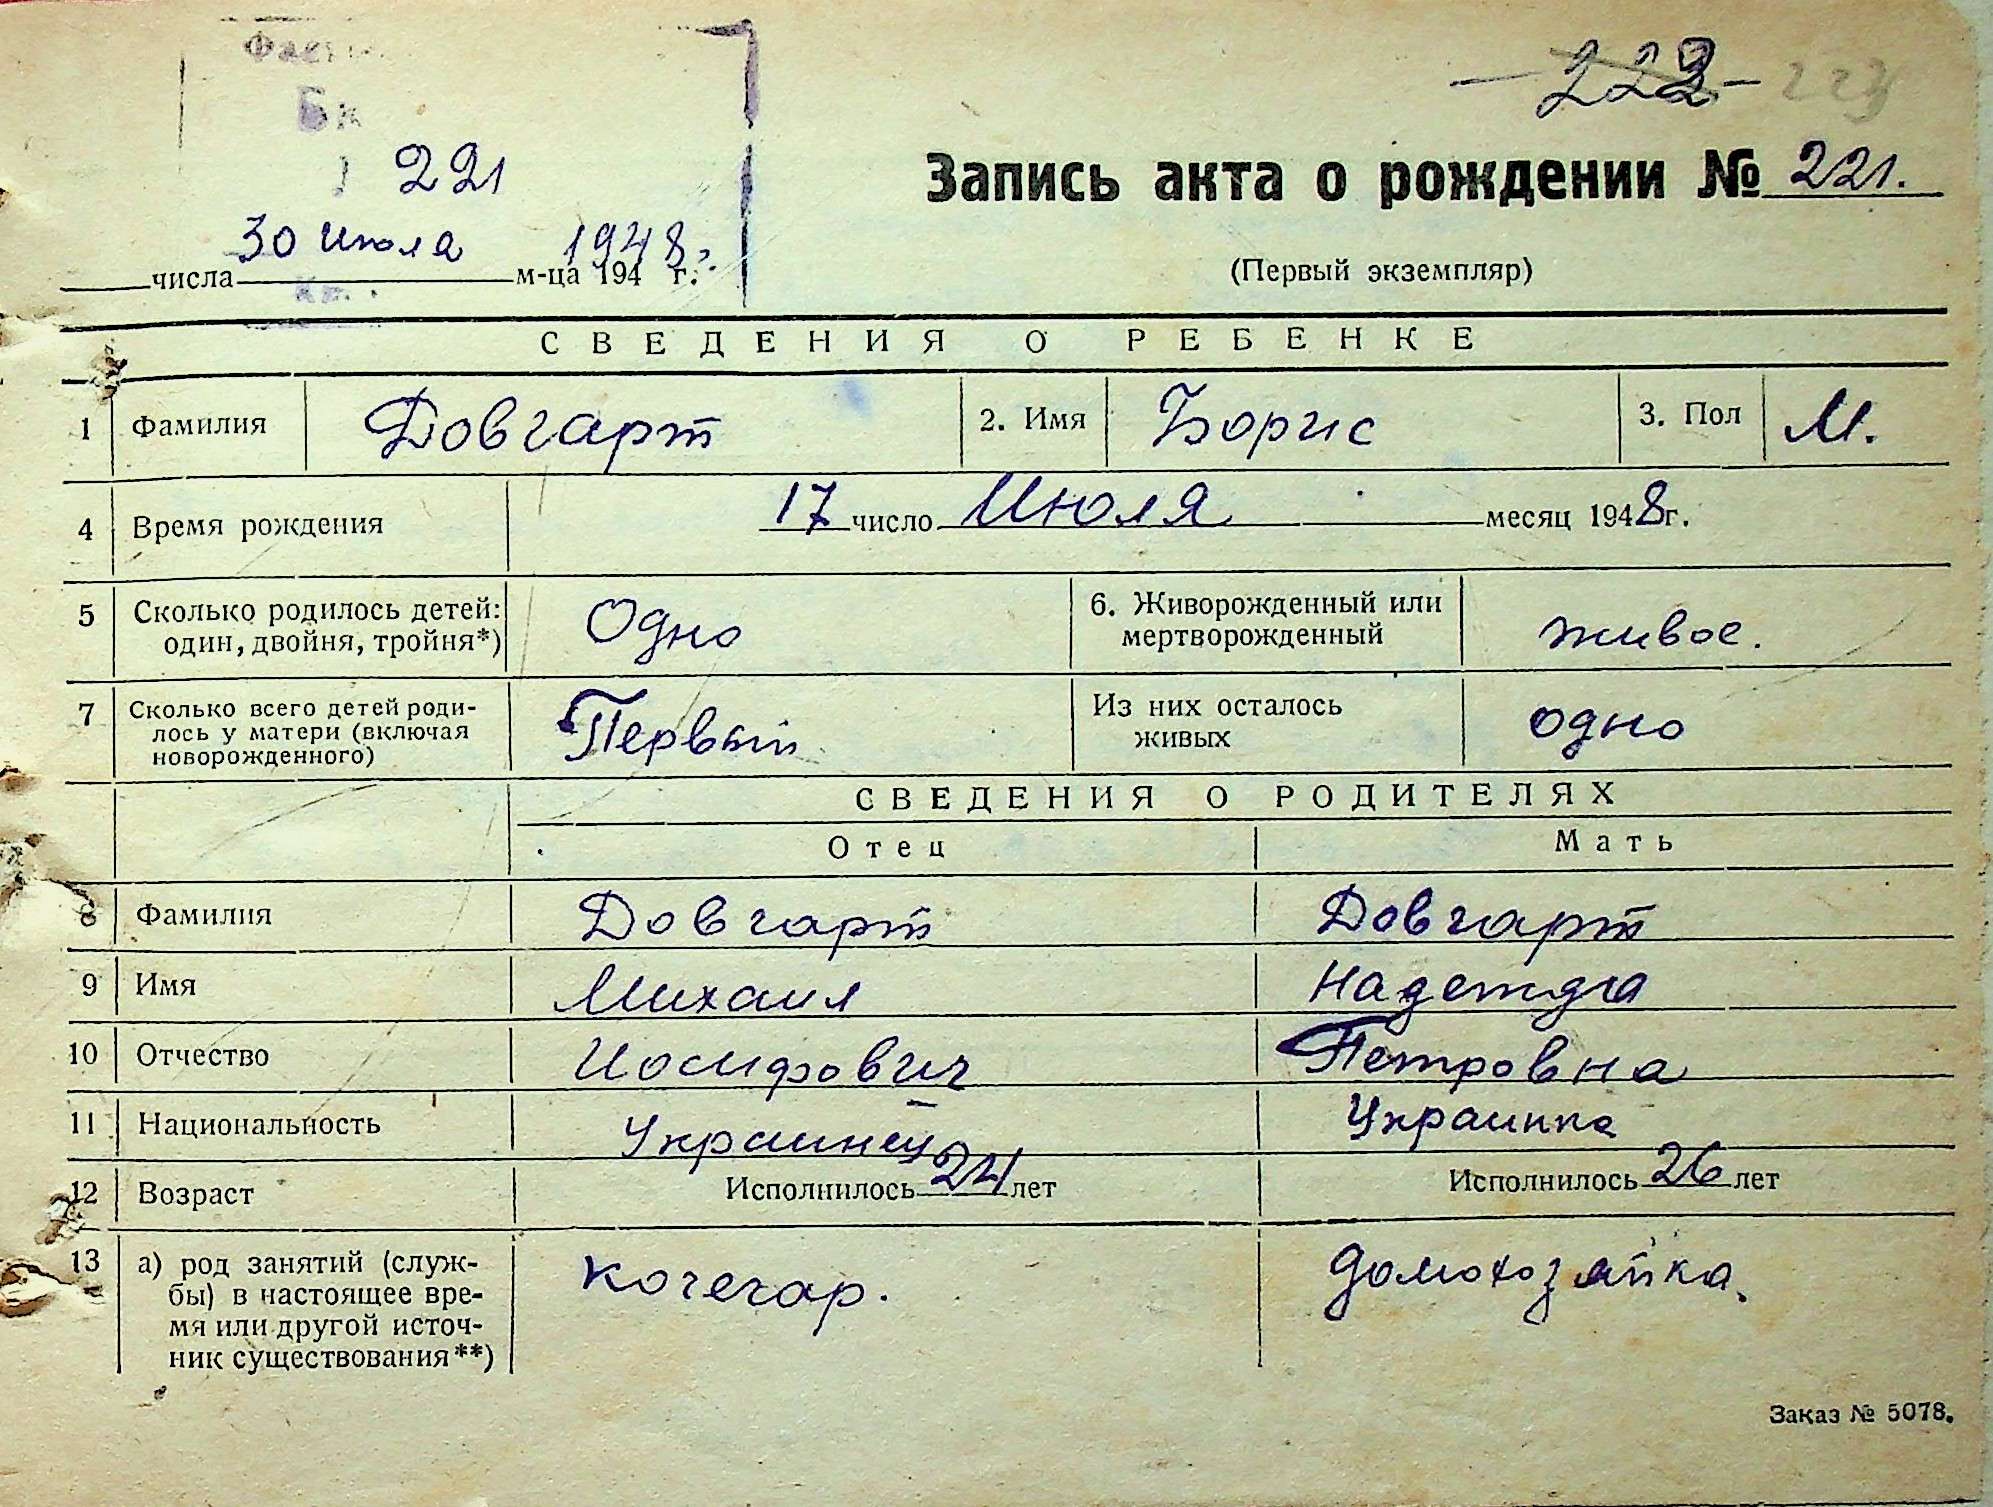 222 223
221
Запись акта о рождении № 221.
30 июля 1948 г.
числа м-ца 194 г.
(Первый экземпляр)
СВЕДЕНИЯ О РЕБЕНКЕ
1 Фамилия Довгарт 2. Имя Борис 3. Пол М.
4 Время рождения 17 число Июля месяц 1948 г.
5 Сколько родилось детей: Одно 6. Живорожденный или живое.
один, двойня, тройня*) мертворожденный
7 Сколько всего детей роди- Первый Из них осталось одно
лось у матери (включая живых
новорожденного)
СВЕДЕНИЯ О РОДИТЕЛЯХ
Отец Мать
8 Фамилия Довгарт Довгарт
9 Имя Михаил Надежда
10 Отчество Иосифович Петровна
11 Национальность Украинец Украинка
12 Возраст Исполнилось 24 лет Исполнилось 26 лет
13 а) род занятий (служ- кочегар. домохозяйка.
бы) в настоящее вре-
мя или другой источ-
ник существования**)
Заказ № 5078.